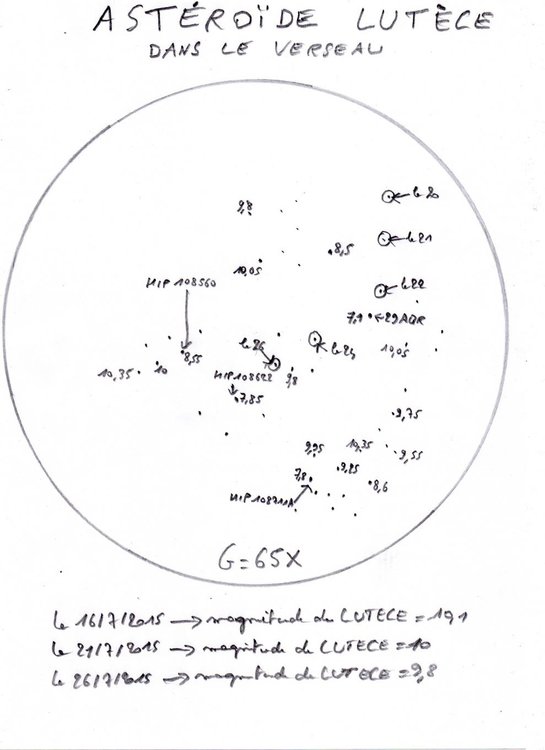 ASTÉROÏDE LUTÈCE
DANS LE VERSEAU
le 20
9,8
le 21
8,5
10,05
HIP 108560
le 22
7,1 ← 29 AQR
le 26
le 24
10,05
8,55
10,35
10
HIP 108622
9,8
7,85
9,75
9,95
10,35
9,55
9,25
7,8
8,6
G = 65X
le 16/7/2015 → magnitude de LUTECE = 10,1
le 21/7/2015 → magnitude de LUTECE = 10
le 26/7/2015 → magnitude de LUTECE = 9,8